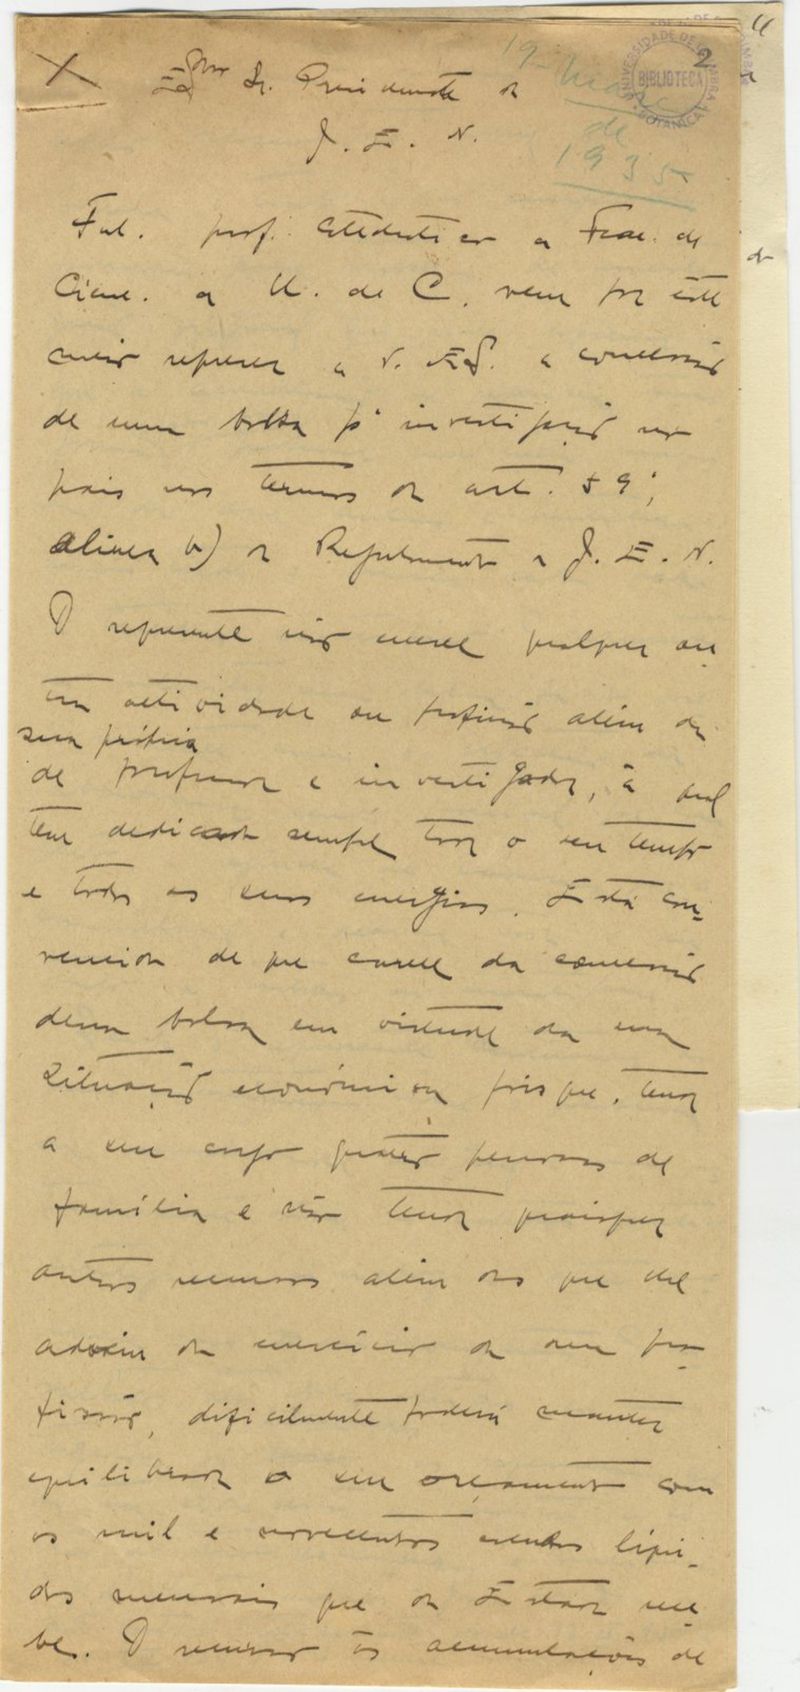 19 - Março
de
1935
2
UNIVERSIDADE DE COIMBRA
BIBLIOTECA
BOTANICA
Exmo Sr. Presidente da
J. E. N.
Ful. prof. catedratico da Fac. de
Cienc. da U. de C. vem por este
meio requerer a V. Exª. a concessão
de uma bolsa pª investigação no
país nos termos do art. 59º,
alinea b) do Regulamento da J. E. N.
O requerente não exerce qualquer ou-
tra actividade ou profissão além da
sua própria
de professor e investigador, à qual
tem dedicado sempre todo o seu tempo
e todas as suas energias. Está con-
vencido de que carece da concessão
dessa bolsa em virtude da sua
situação económica pois que, tendo
a seu cargo quatro pessoas de
família e não tendo quaisquer
outros recursos além dos que lhe
advêm do exercício da sua pro-
fissão, dificilmente poderá manter
equilibrado o seu orçamento com
os mil e novecentos escudos liqui-
dos mensais que do Estado rece-
be. O recurso às acumulações de